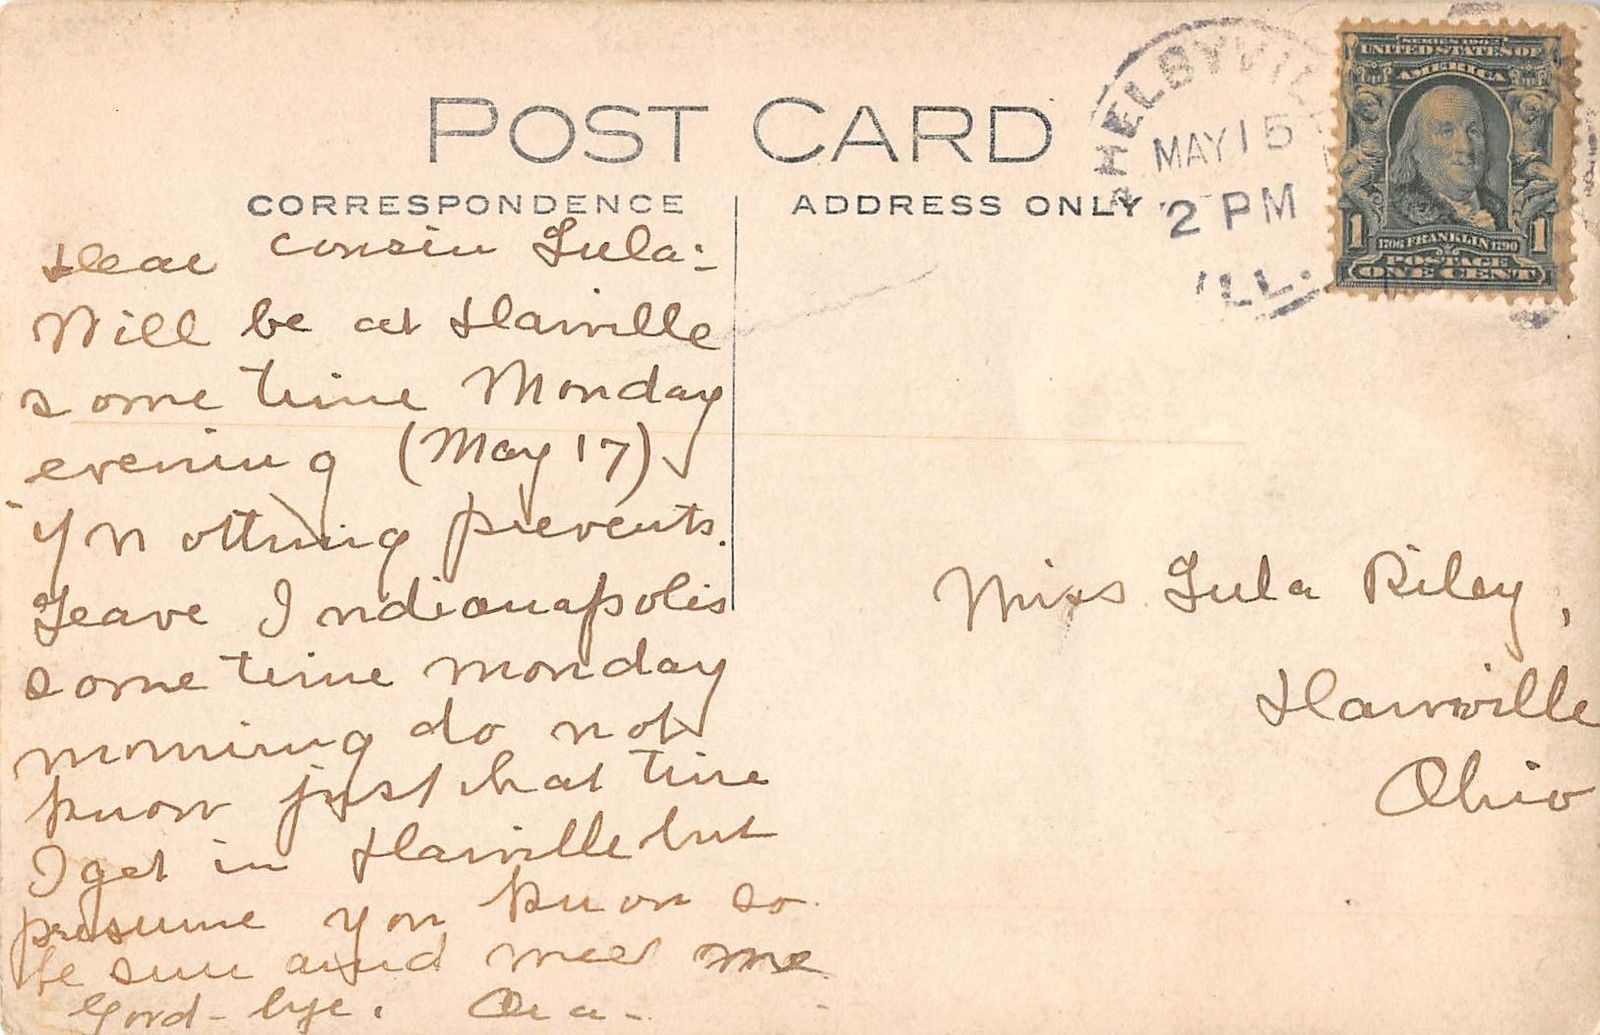 POST CARD
CORRESPONDENCE
ADDRESS ONLY
SHELBYVILL
MAY 15
2 PM
ILL.
SERIES 1902
UNITED STATES OF
AMERICA
1 1706 FRANKLIN 1790 1
POSTAGE
ONE CENT
Dear cousin Lula:
Will be at Hanville
some time Monday
evening (May 17)
if nothing prevents.
Leave Indianapolis
some time monday
morning do not
know just what time
I get in Hanville but
presume you know so
be sure and meet me
Good-bye. Ora-
Miss Lula Riley,
Hanville
Ohio